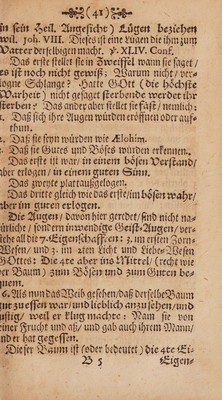 (41)
in sein Heil. Angesicht) Lügen beziehen
wil. Joh. VIII. Dieses ist eine Lügen die ihn zum
Vatter derselbigen macht. v. XLIV. Conf.
Das erste stellet sie in Zweiffel wann sie saget/
es ist noch nicht gewiß: Warum nicht/ ver-
logene Schlange? Hatte GOtt (die höchste
Warheit) nicht gesagt sterbende werdet ihr
sterben? Das ander aber stellet sie fast/ nemlich:
Daß sich ihre Augen würden eröffnen oder auf-
thun.
Daß sie seyn würden wie Ælohim.
Daß sie Gutes und Böses würden erkennen.
Das erste ist war/ in einem bösen Verstand/
aber erlogen/ in einem guten Sinn.
Das zweyte platt außgelogen.
Das dritte gleich wie das erste/im bösen wahr/
aber im guten erlogen.
Die Augen/ davon hier geredet/ sind nicht na-
türliche/ sondern inwendige Geist-Augen/ wer-
che all die 7. Eigenschafften: 3. im ersten Zorn-
Wesen/ und 3. im 2ten Licht und Liebe-Wesen
GOttes: Die 4te aber ins Mittel/ (recht wie
der Baum) zum Bösen und zum Guten be-
quem.
6. Als nun das Weib gesehen/daß derselbe Baum
gut zu essen war/ und lieblich anzusehen/ und
lustig/ weil er klug machte: Nam sie von
seiner Frucht und aß/ und gab auch ihrem Mann/
und er hat gegessen.
Dieser Baum ist (oder bedeutet) die 4te Ei-
B 5 Eigen-